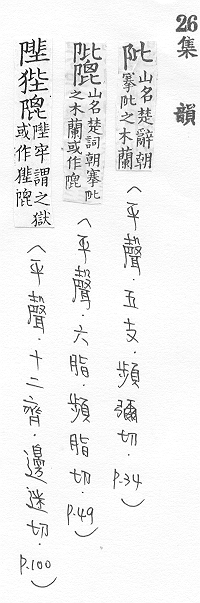 26集韻
阰 山名楚辭朝
搴阰之木蘭
（平聲．五支．頻彌切．p.34）
阰 山名楚詞朝搴阰
之木蘭或作
（平聲．六脂．頻脂切．p.49）
陛狴 陛牢謂之獄
或作狴
（平聲．十二齊．邊迷切．p.100）